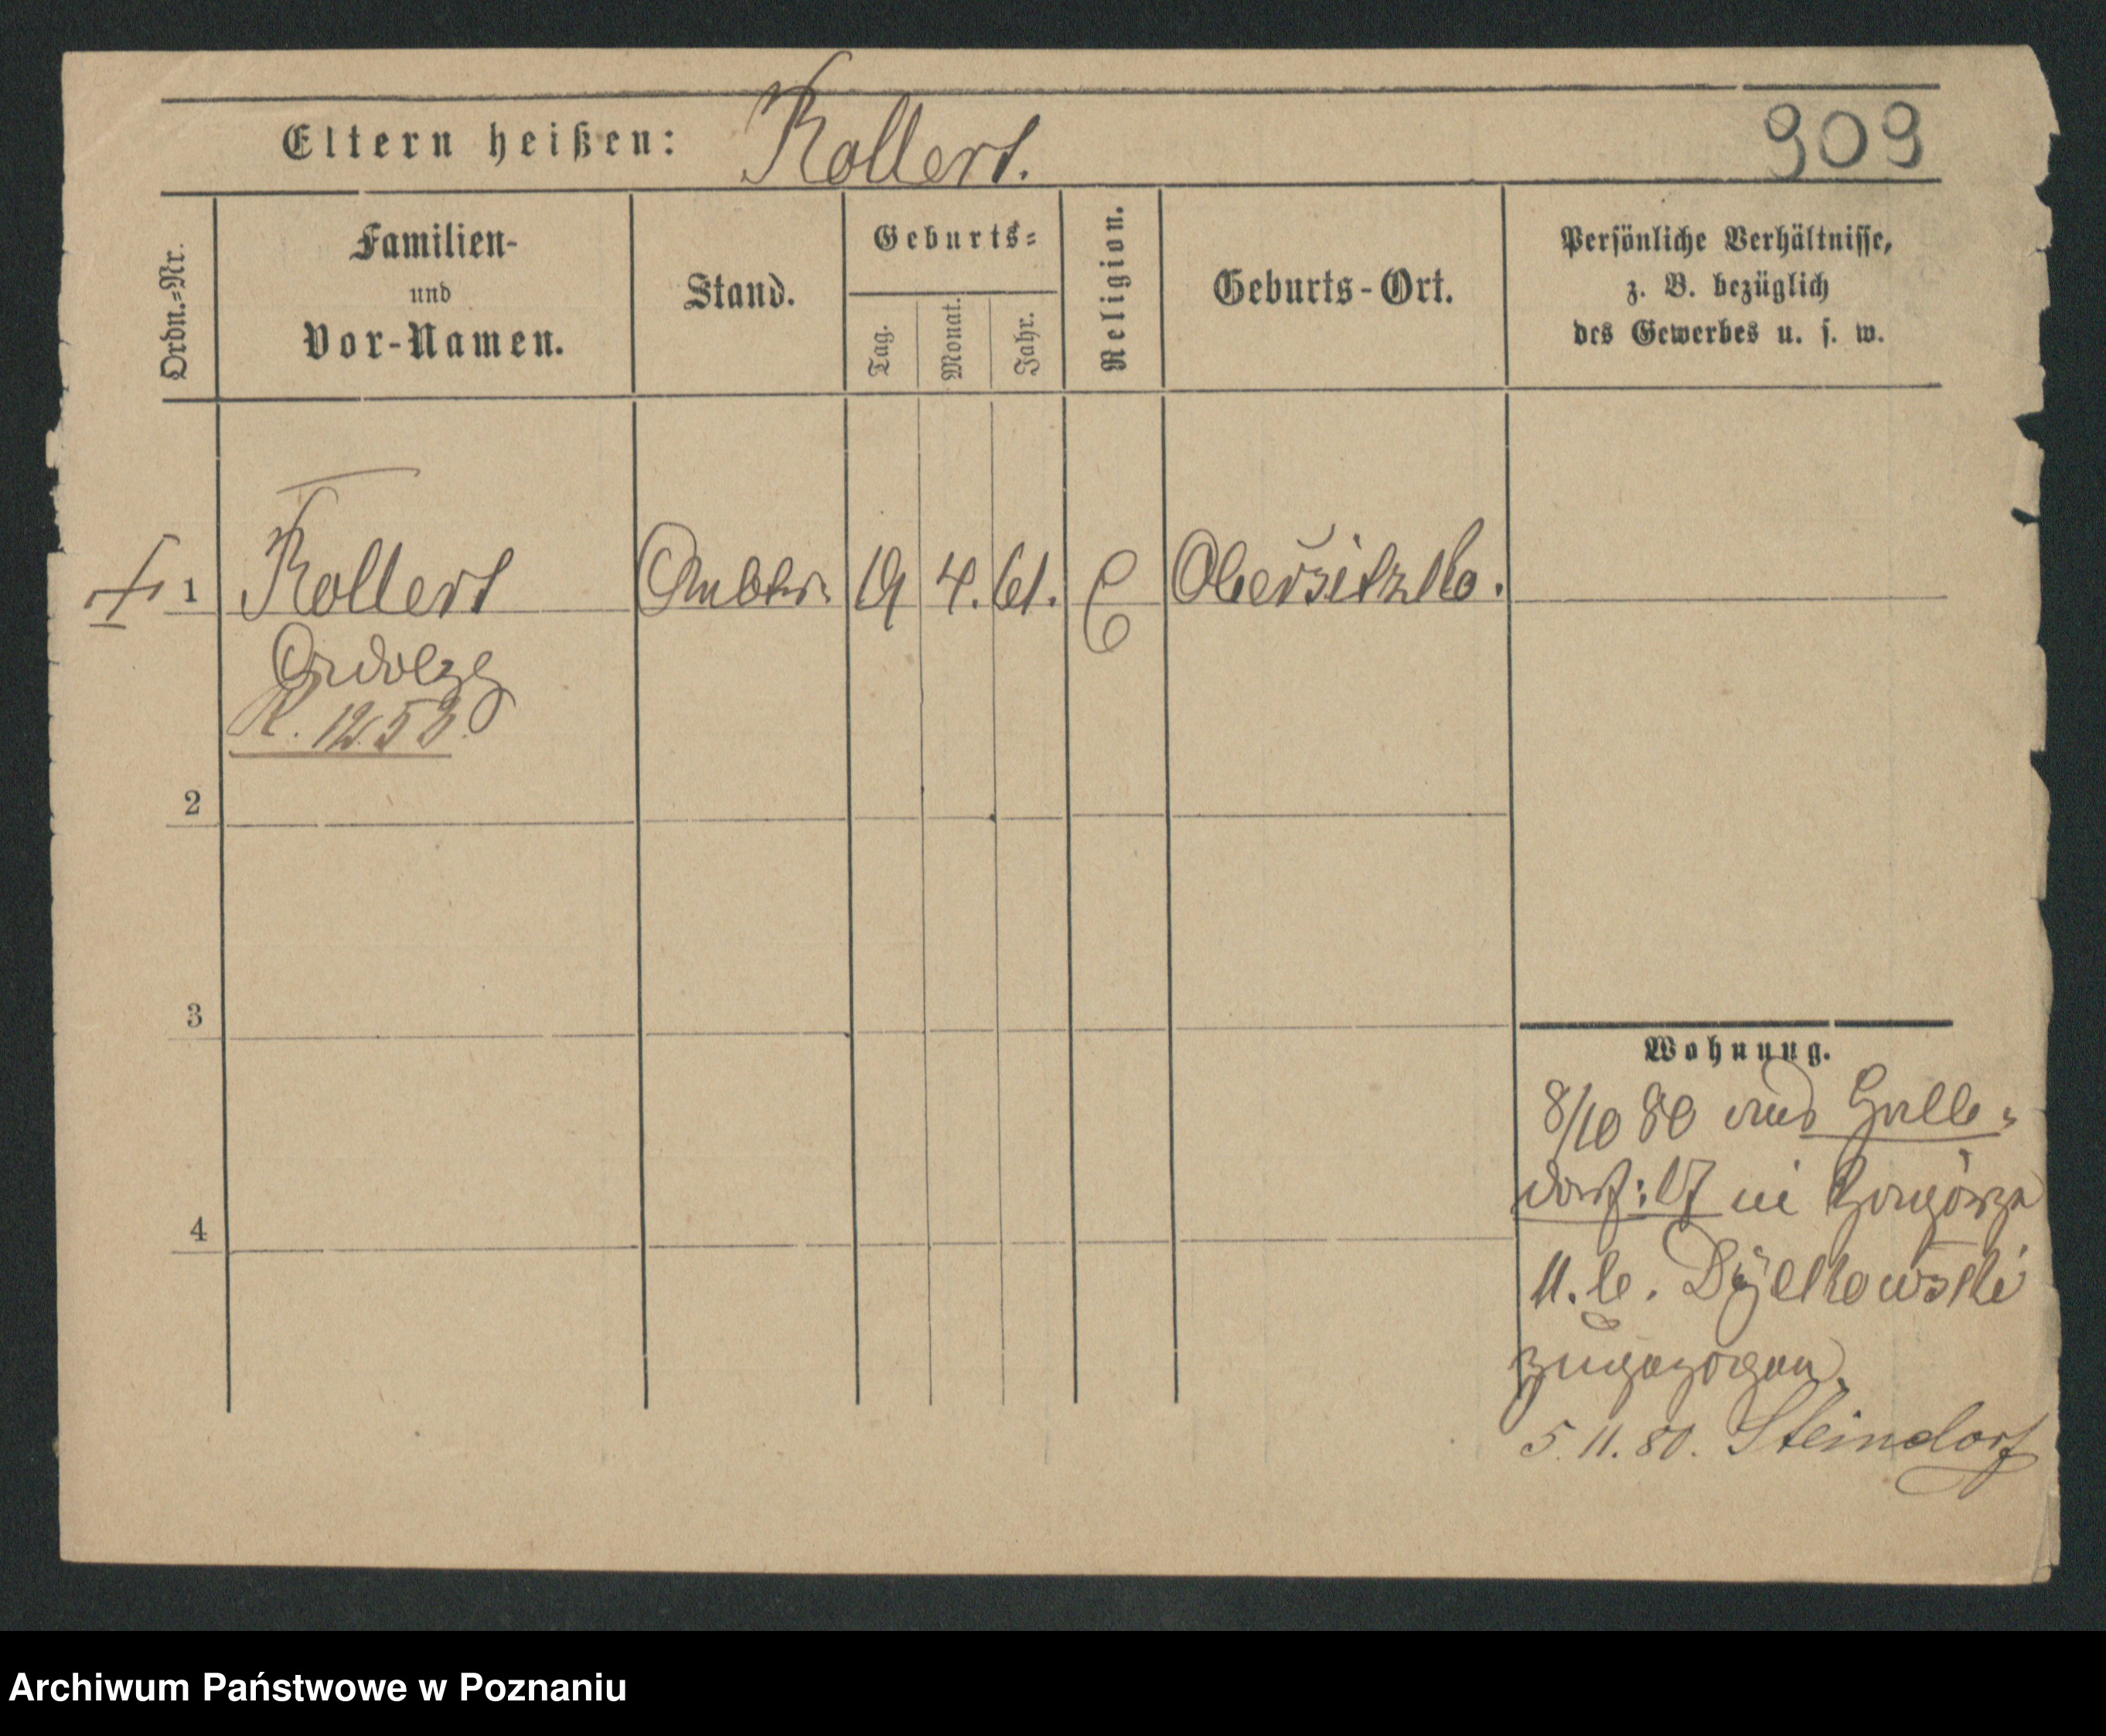 Eltern heißen: Rollert.
909
Ordn.=Nr.
Familien-
und
Vor-Namen.
Stand.
Geburts=
Tag.
Monat.
Jahr.
Religion.
Geburts-Ort.
Persönliche Verhältnisse,
z. B. bezüglich
des Gewerbes u. s. w.
1 Rollert 19 4. 61. Obersitzko.
2
3
4
Wohnung.
8/10 80 aus Halle-
dorf: 17 in
zugezogen
5. 11. 80. Steindorf
Archiwum Państwowe w Poznaniu